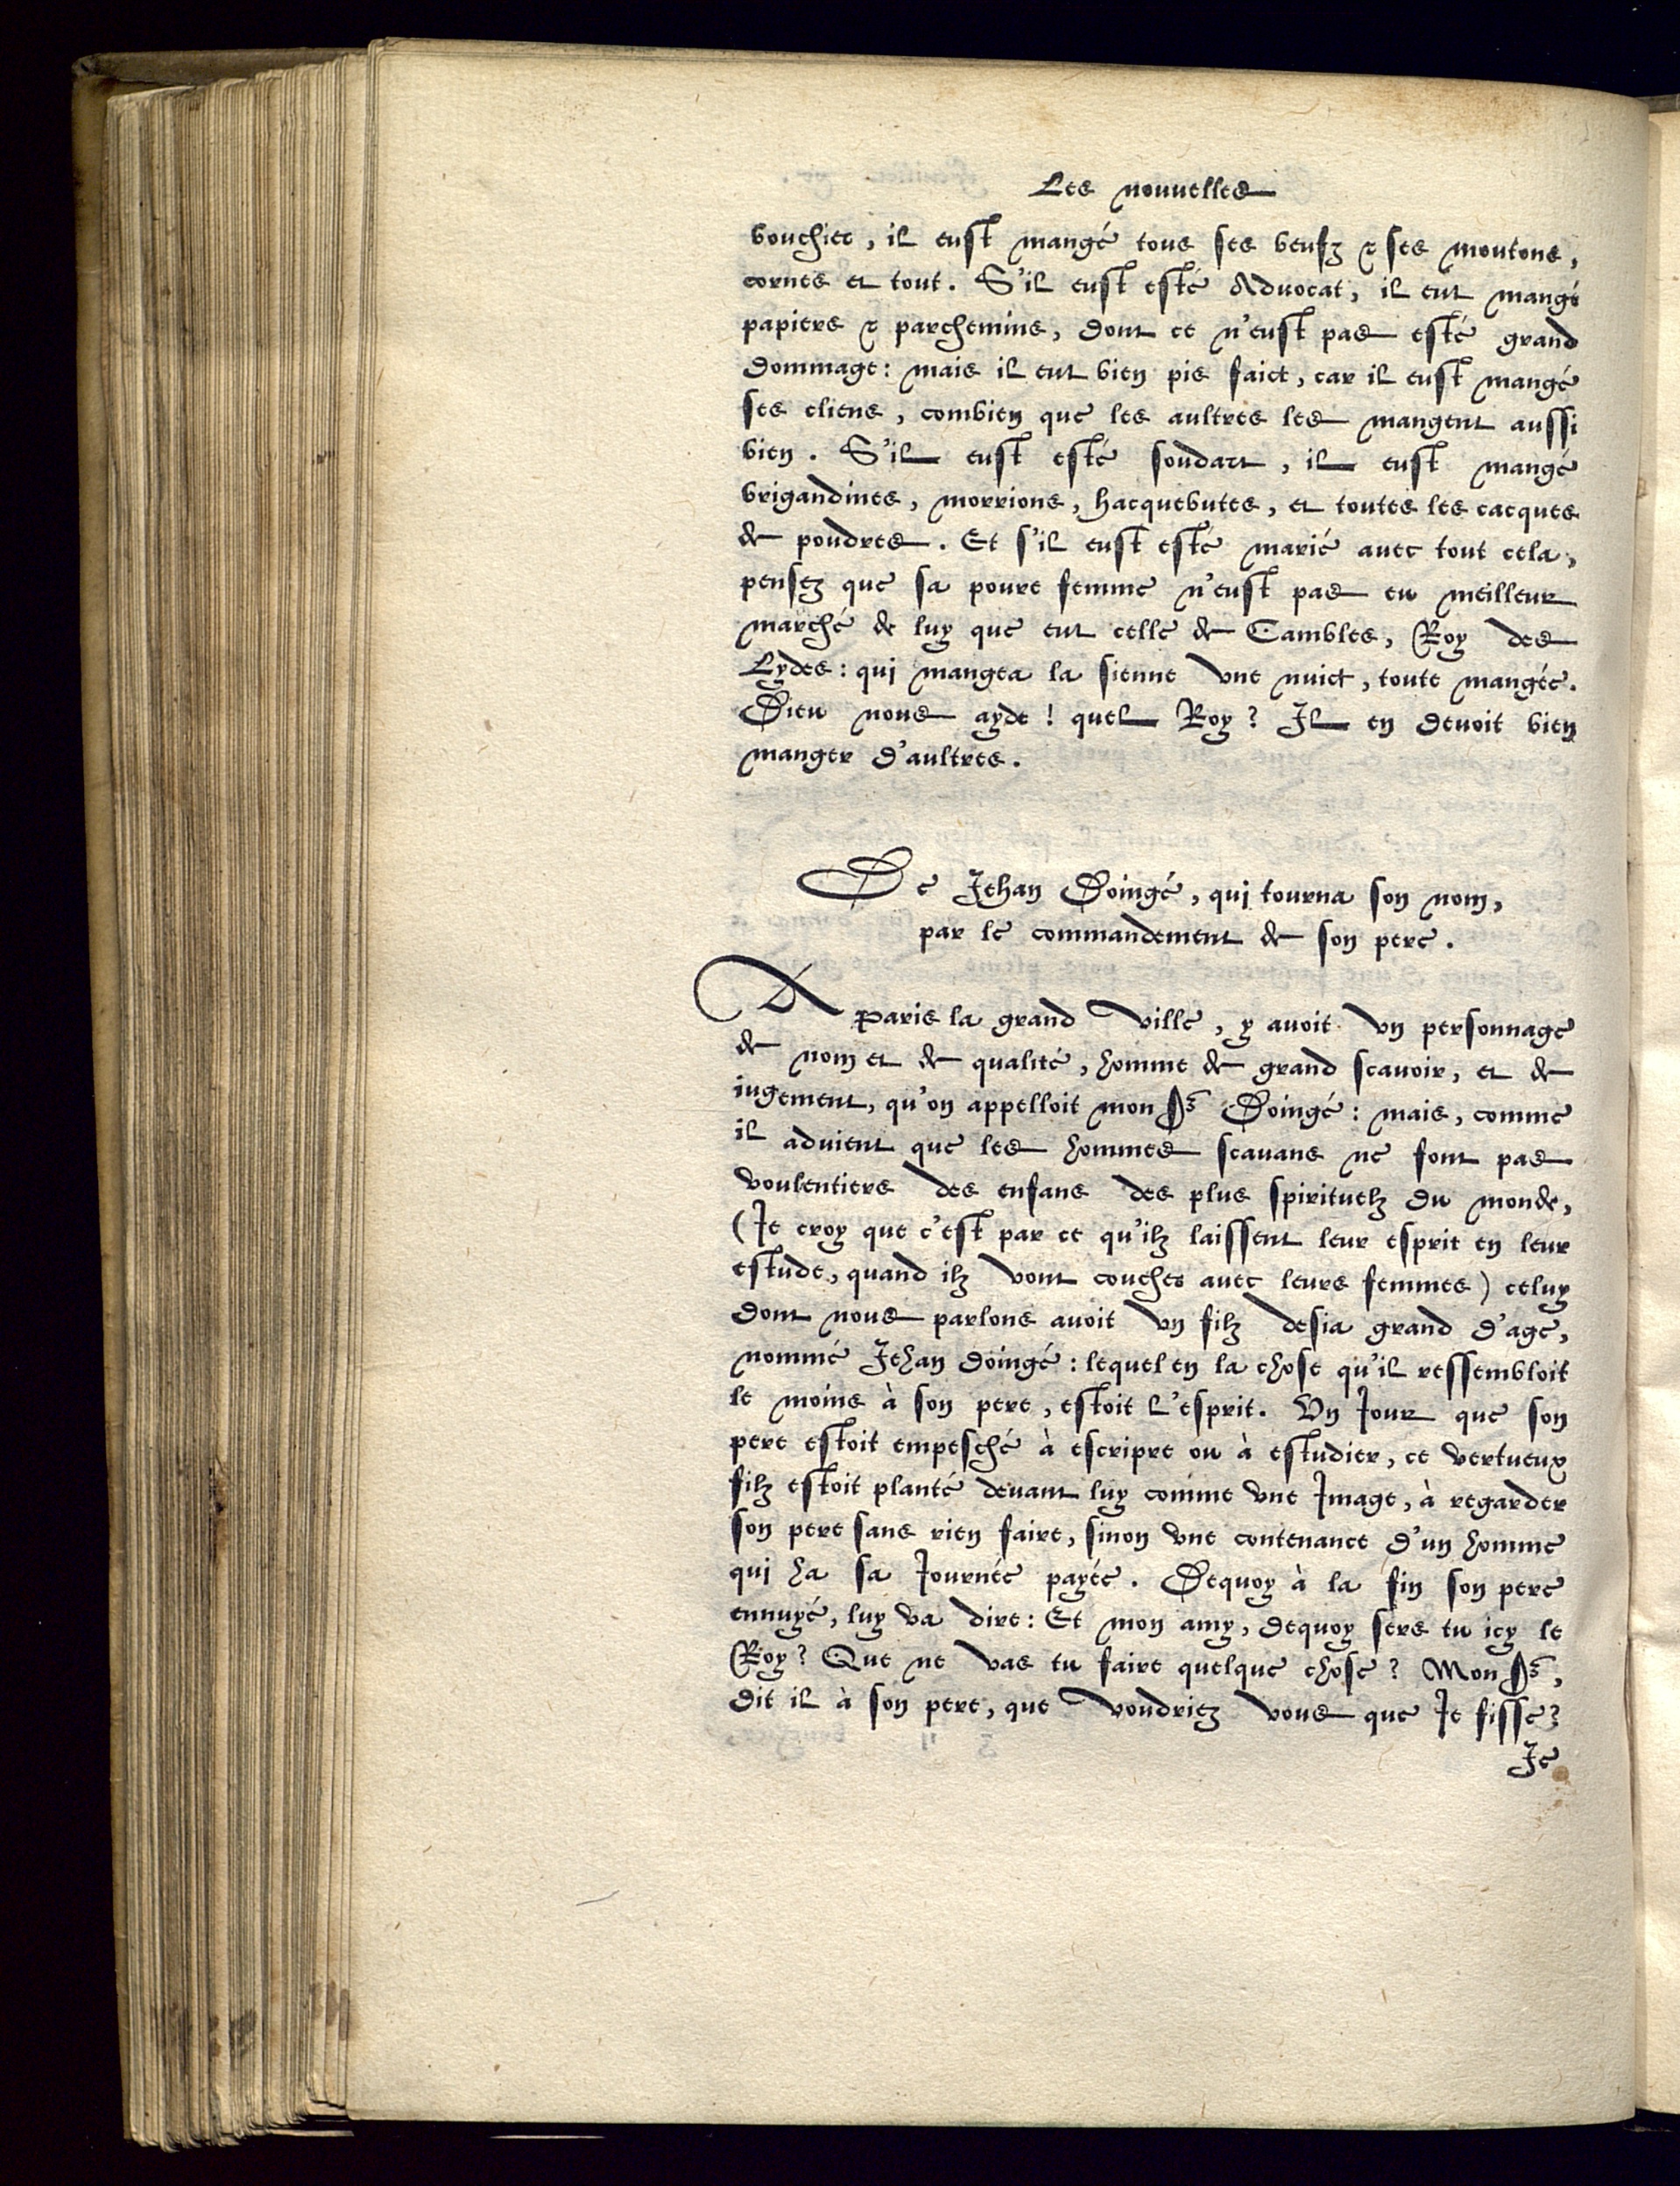 Les nouuelles
bouchier, il eust mangé tous ses beufz & ses moutons,
cornes et tout. S'il eust esté Aduocat, il eut mangé
papiers & parchemins, dont ce n'eust pas esté grand
dommage: mais il eut bien pis faict, car il eust mangé
ses cliens, combien que les aultres les mangent aussi
bien. S'il eust esté soudart, il eust mangé
brigandines, morrions, hacquebutes, et toutes les cacques
de poudres. Et s'il eust esté marié auec tout cela,
pensez que sa poure femme n'eust pas eu meilleur
marché de luy que eut celle de Cambles, Roy des
Lydes: qui mangea la sienne vne nuict, toute mangée.
Dieu nous ayde! quel Roy? Il en deuoit bien
manger d'aultres.
De Jehan Doingé, qui tourna son nom,
par le commandement de son pere.
A Paris la grand ville, y auoit vn personnage
de nom et de qualité, homme de grand scauoir, et de
iugement, qu'on appelloit mon Sr Doingé: mais, comme
il aduient que les hommes scauans ne font pas
voulentiers des enfans des plus spirituelz du monde,
(Je croy que c'est par ce qu'ilz laissent leur esprit en leur
estude, quand ilz vont coucher auec leurs femmes) celuy
dont nous parlons auoit vn filz desia grand d'age,
nommé Jehan doingé: lequel en la chose qu'il ressembloit
le moins à son pere, estoit l'esprit. Vn Jour que son
pere estoit empesché à escripre ou à estudier, ce vertueux
filz estoit planté deuant luy comme vne Image, à regarder
son pere sans rien faire, sinon vne contenance d'un homme
qui ha sa Journée payée. Dequoy à la fin son pere
ennuyé, luy va dire: Et mon amy, dequoy sers tu icy le
Roy? Que ne vas tu faire quelque chose? Mon Sr,
dit il à son pere, que voudriez vous que Je fisse?
Je